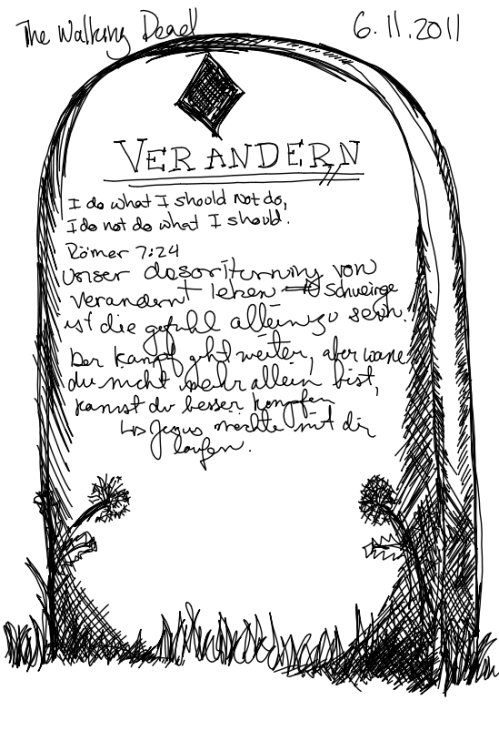 The Walking Dead 6.11.2011
VERANDERN
I do what I should not do,
I do not do what I should.
Römer 7:24
unser von
Verandert leben schweinge
ist die gefuhl allein zu sein.
Der Kampf geht weiter, aber wane
du nicht mehr allein bist,
kannst du besser kempfen
Jesus mochte mit dir
laufen.